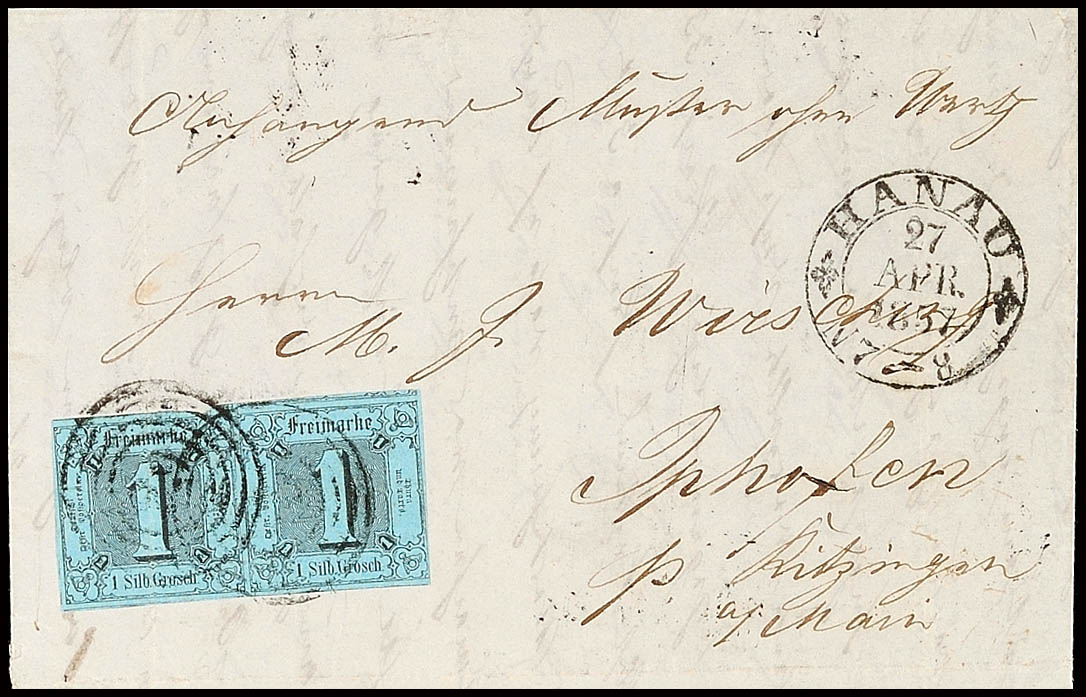 Anhangend Muster ohne Wert
HANAU
27
APR.
1857
N 7-8
Herrn
M. J. Wirsching
Freimarke
1
1 Silb. Grosch
Freimarke
1
1 Silb. Grosch
Iphofen
p Kitzingen
a/ Main